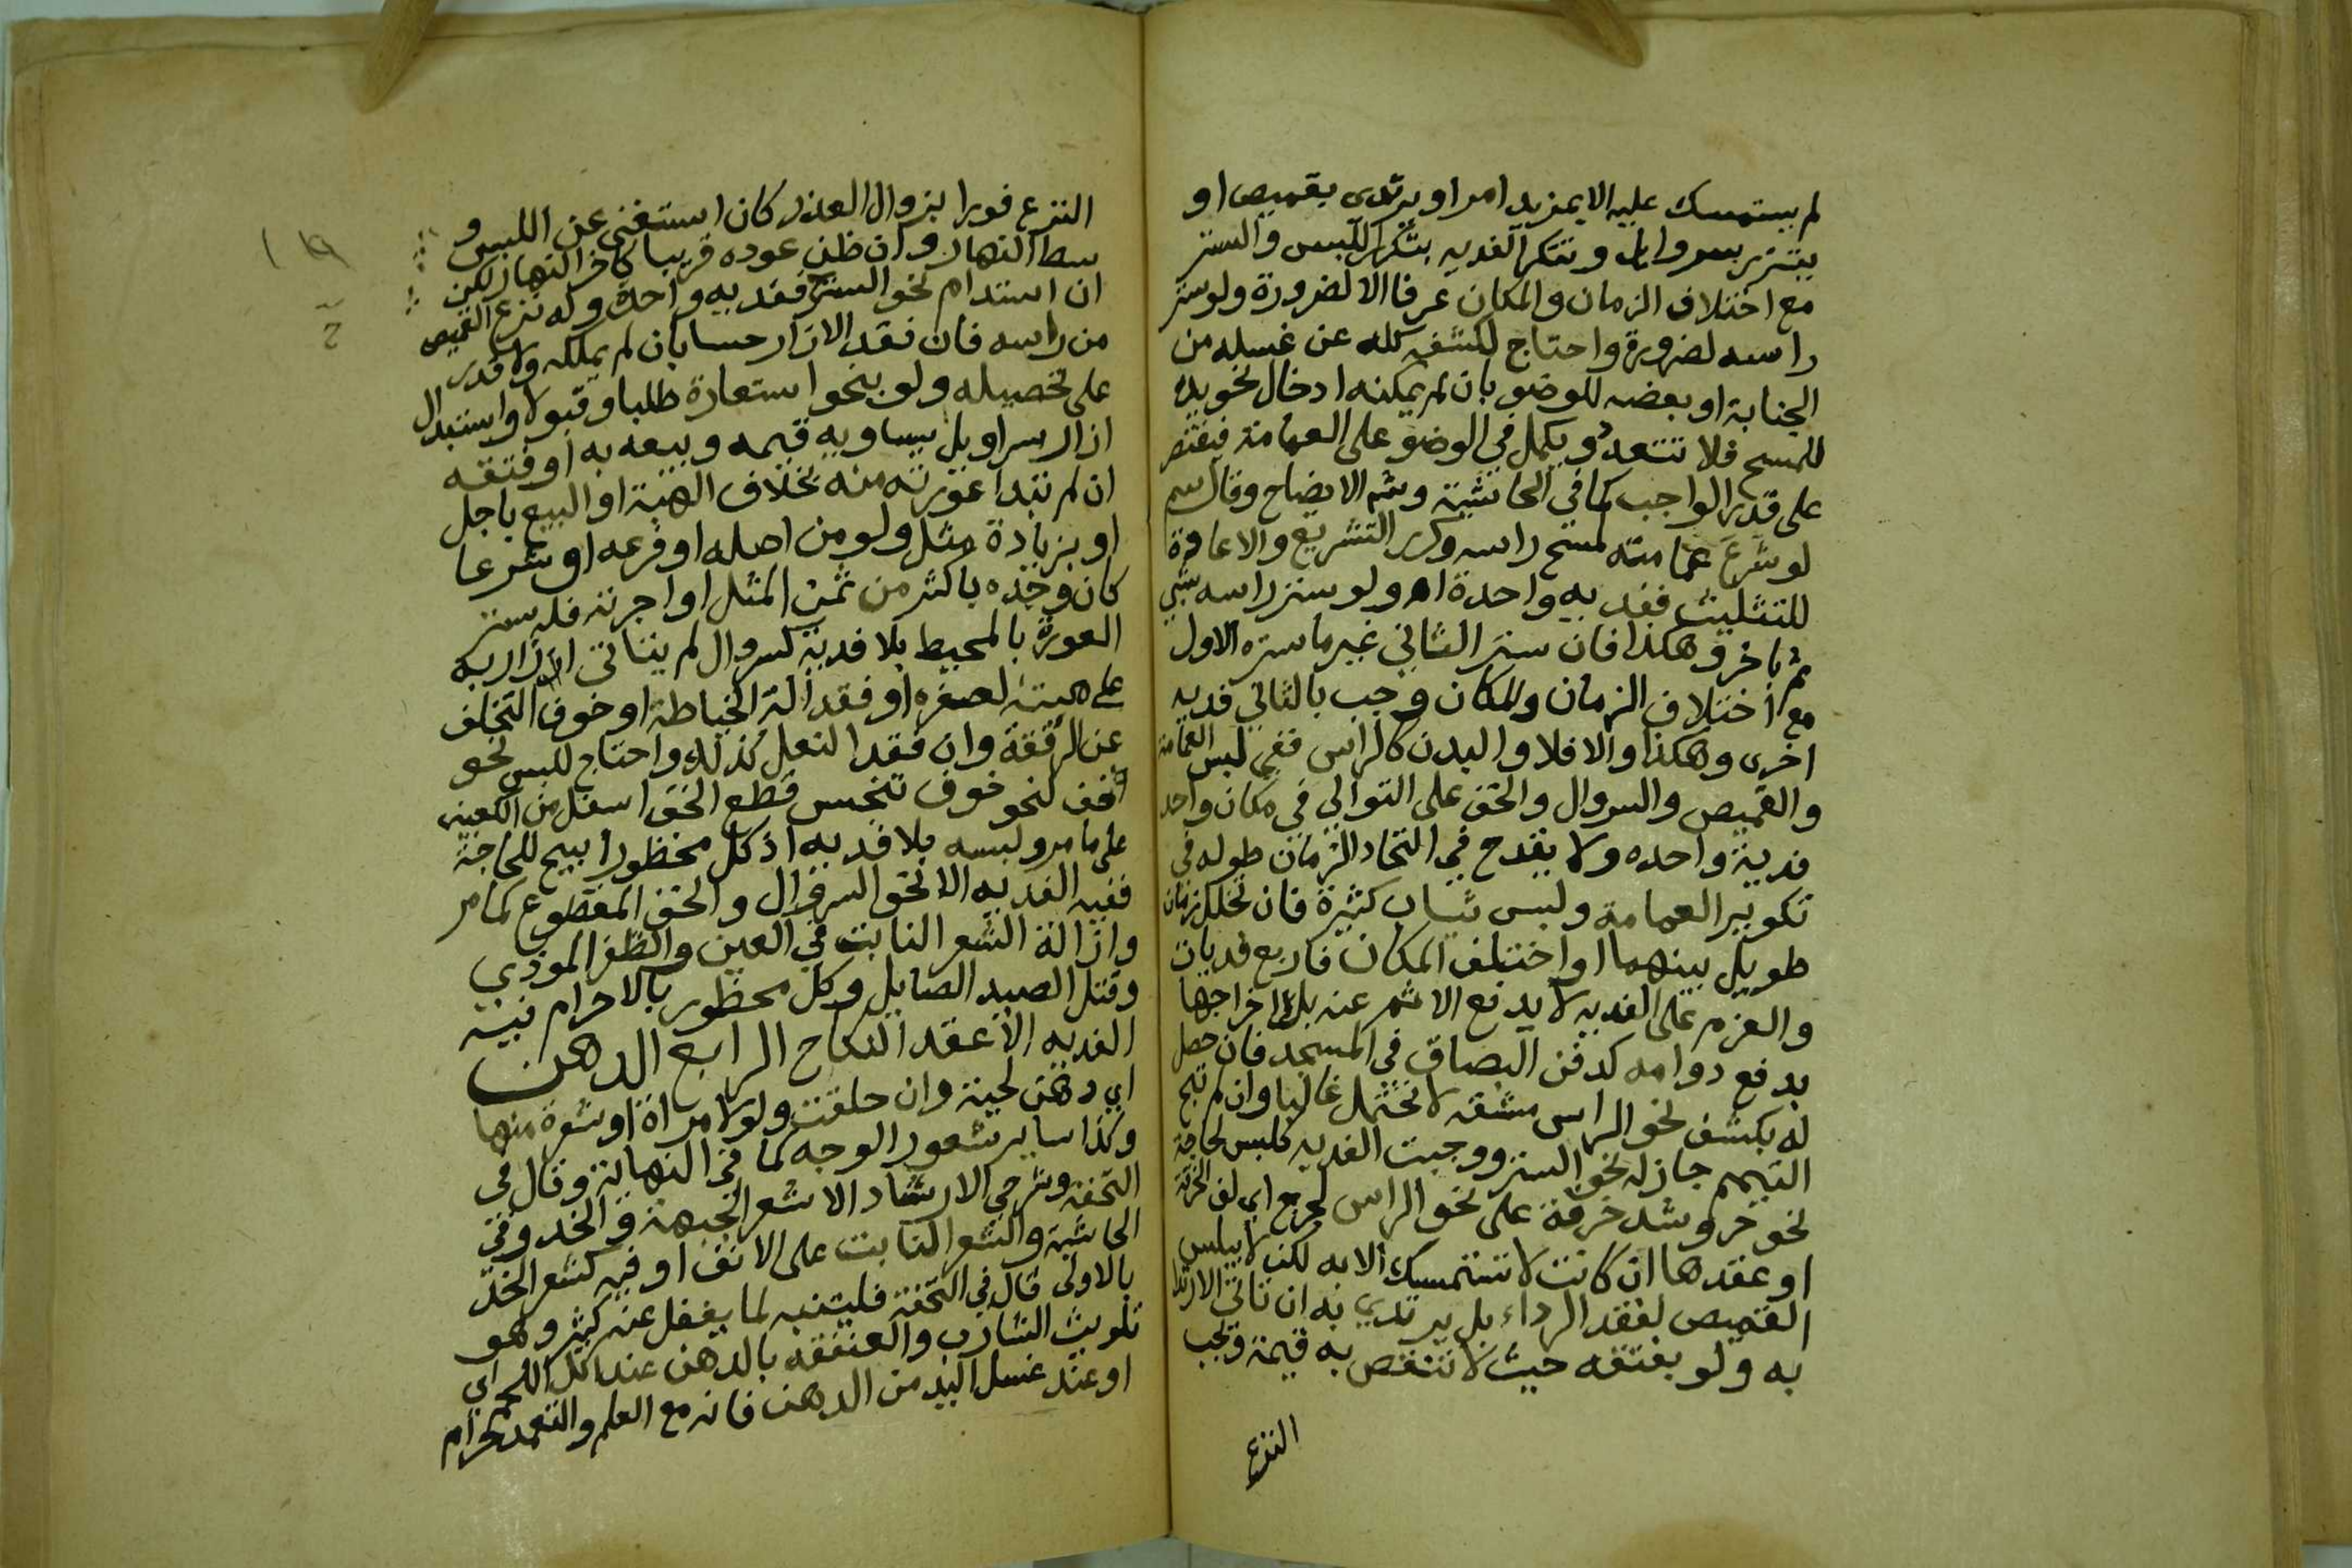 لم يستمسك عليه الا بمزيد امر او يرتدى بقميص او
يتزر بسروايل وتتكرر الفديه بتكرر اللبس والستر
مع اختلاف الزمان والمكان عرفا الا لضرورة ولو ستر
راسه لضرورة واحتاج لكشف كله عن غسله من
الجنابة او بعضه للوضو بان لم يمكنه ادخال نحو يده
للمسح فلا تتعدد ويكمل في الوضو على العمامة فيقتصر
على قدر الواجب كما في الحاشية وشم الايضاح وقال سم
لو شرع عمامته لمسح راسه وكرر التشريع والاعادة
للتثليث ففديه واحدة اه ولو ستر راسه بشي
ثم باخر وهكذا فان ستر الثاني غير ما ستره الاول
مع اختلاف الزمان والمكان وجب بالثاني فديه
اخرى وهكذا والا فلا والبدن كالراس ففي لبس العمامة
والقميص والسروال والخف على التوالي في مكان واحد
فدية واحده ولا يقدح في اتحاد الزمان طوله في
تكوير العمامة ولبس ثياب كثيرة فان تخلل زمان
طويل بينهما او اختلف المكان فاربع فديات
والعزم على الفديه لا يدفع الاثم عنه بل اخراجها
يدفع دوامه كدفن البصاق في المسجد فان حصل
له بكشف نحو الراس مشقه لا تحتمل غالبا وان لم تبح
التيمم جاز له نحو الستر ووجبت الفديه كلبس لحاجة
نحو حر وشد خرقة على نحو الراس لجرح اي لف الخرقة
او عقدها ان كانت لا تستمسك الا به لكن لا يلبس
القميص لفقد الرداء بل يرتدي به ان تاتى الارتدا
به ولو بفتقه حيث لا تنقص به قيمة ويجب
النزع
النزع فورا بزوال العذر كان استغنى عن اللبس و
سط النهار وان ظن عوده قريبا كاخر النهار لكن
ان استدام نحو الستر ففديه واحدة وله نزع القميص
من راسه فان فقد الازار حسا بان لم يملكه ولا قدر
على تحصيله ولو بنحو استعارة طلبا وقبولا واستبدال
ازار سراويل يساويه قيمه وبيعه به او فتقه
ان لم تبدا عورته منه بخلاف الهبة او البيع باجل
او بزيادة مثل ولو من اصله او فرعه او شرعا
كان وجده باكثر من ثمن المثل او اجرته فله ستر
العورة بالمحيط بلا فدية كسروال لم يتاتى الاتزار به
على هيئته لصغره او فقد الة الخياطة او خوف التخلف
عن الرفقة وان فقد النعل كذلك واحتاج للبس نحو
الخف لنحو خوف تنجس قطع الخف اسفل من الكعبين
على ما مر ولبسه بلا فديه اذ كل محظور ابيح للحاجة
ففيه الفديه الا نحو السروال والخف المقطوع كما مر
وازالة الشعر النابت في العين والظفر الموذي
وقتل الصيد الصايل وكل محظور بالاحرام فيه
الفديه الا عقد النكاح الرابع الدهن
اي دهن لحية وان حلقت ولو لامراة او شعرة منها
وكذا ساير شعور الوجه كما في النهاية وقال في
التحفة وشرحي الارشاد الا شعر الجبهة والخد وفي
الحاشية والشعر النابت على الانف او فيه كشعر الخد
بالاولى قال في التحفة فليتنبه لما يغفل عنه كثير وهو
تلويث الشارب والعنفقه بالدهن عند اكل اللحم اي
او عند غسل اليد من الدهن فانه مع العلم والتعمد حرام